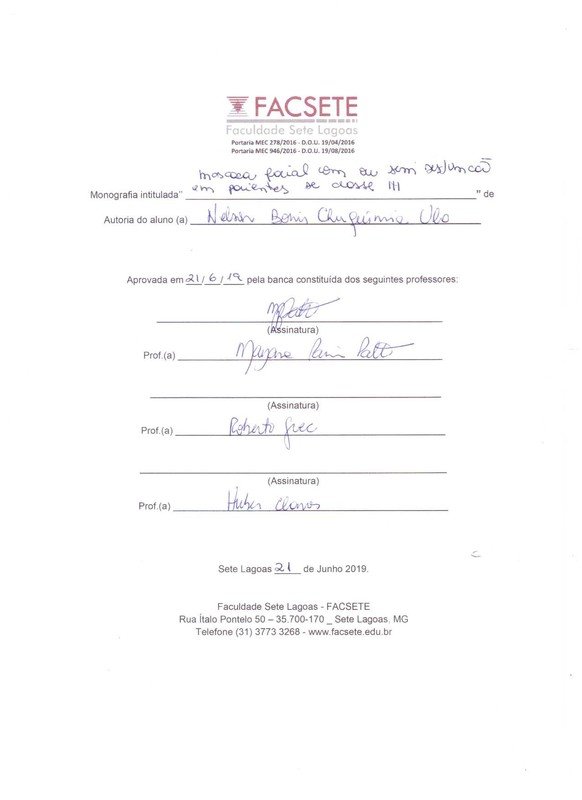 FACSETE
Faculdade Sete Lagoas
Portaria MEC 278/2016 - D.O.U. 19/04/2016
Portaria MEC 946/2016 - D.O.U. 19/08/2016
mascara facial com ou sem disjuncão
Monografia intitulada" em pacientes se classe III " de
Autoria do aluno (a) Nelson Boris Chuquimia
Aprovada em 21/6/19 pela banca constituída dos seguintes professores:
(Assinatura)
Prof.(a)
(Assinatura)
Prof.(a) Roberto Grec
(Assinatura)
Prof.(a) Huber Claros
Sete Lagoas 21 de Junho 2019.
Faculdade Sete Lagoas - FACSETE
Rua Ítalo Pontelo 50 – 35.700-170 _ Sete Lagoas. MG
Telefone (31) 3773 3268 - www.facsete.edu.br